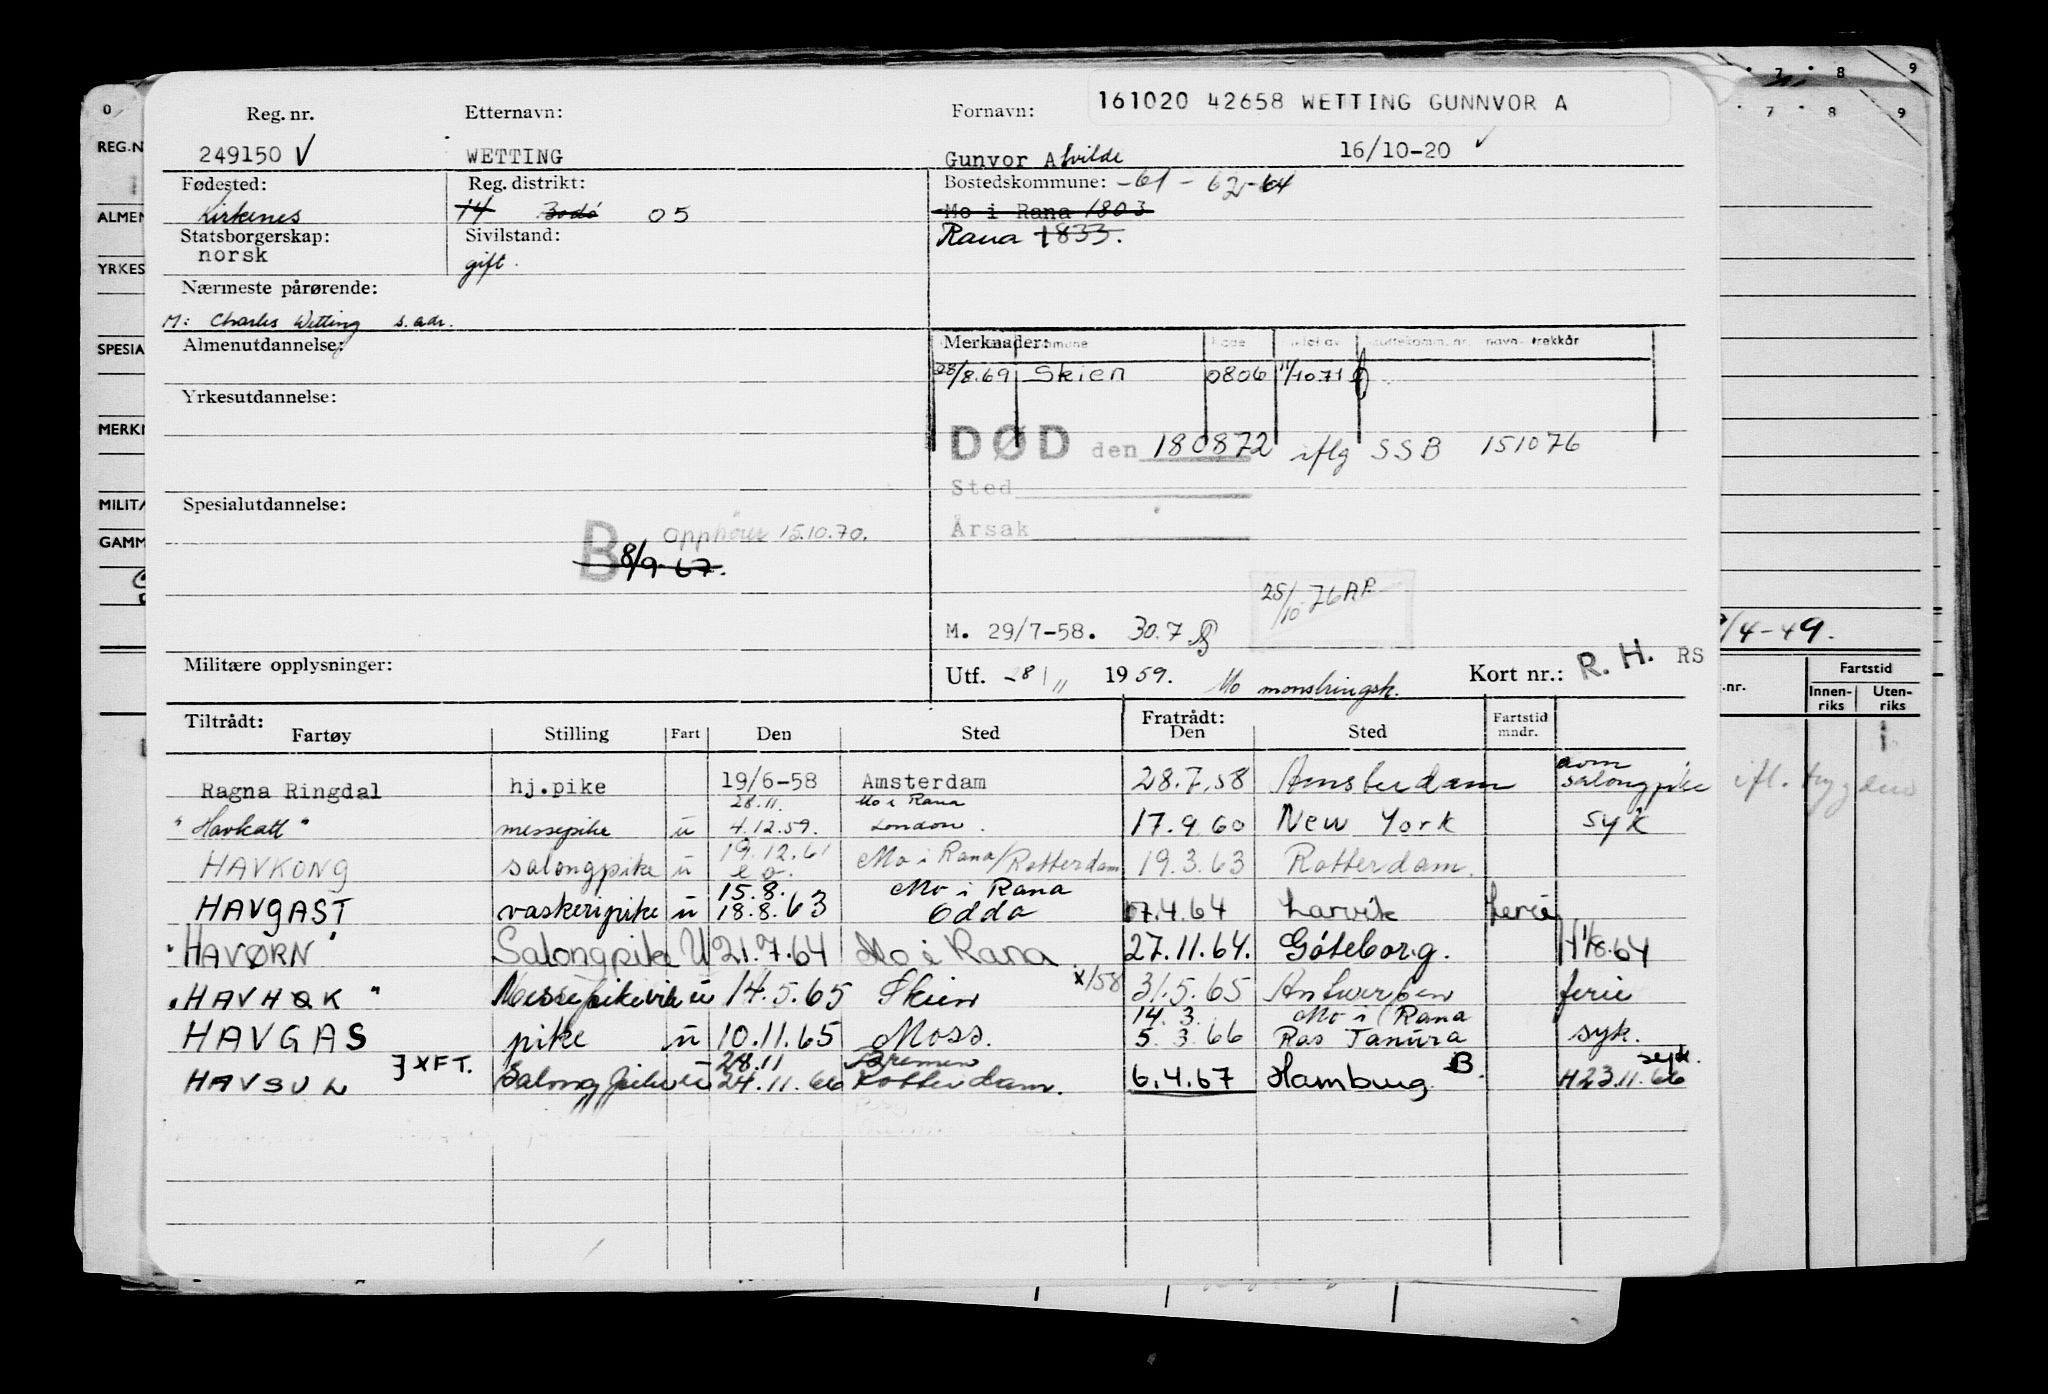 161020 42658 WETTING GUNNVOR A
Reg. nr. Etternavn: Fornavn:
249150 V WETTING Gunvor Alvilde 16/10-20
Fødested: Reg. distrikt: Bostedskommune: -61 - 62-64
Kirkenes 14 Bodø 05 Mo i Rana 1803
Statsborgerskap: Sivilstand: Rana 1833.
norsk gift.
Nærmeste pårørende:
M: Charles Wetting s. adr.
Almenutdannelse: Merknader: navn- trekkår
28/8.69 Skien 0806 11/10.71
Yrkesutdannelse:
DØD den 180872 iflg SSB 151076
Sted
Spesialutdannelse:
Årsak
B opphører 15.10.70.
8/9-67.
25/10 76 AR
M. 29/7-58. 30.7
Militære opplysninger: Utf. 28/11 1959. Mo monstringsk. Kort nr.: R. H. RS
Tiltrådt: Fratrådt: Fartstid
Fartøy Stilling Fart Den Sted Den Sted mndr.
Ragna Ringdal hj.pike 19/6-58 Amsterdam 28.7.58 Amsterdam avm salongpike
"Havkatt" messepike u 28.11. 4.12.59. Mo i Rana London. 17.9.60 New York syk
HAVKONG salongpike u 19.12.61 e o. Mo i Rana/Rotterdam 19.3.63 Rotterdam.
HAVGAST vaskeripike u 15.8. 18.8.63 Mo i Rana Odda 07.4.64 Larvik ferie
"HAVØRN" Salongpike U 21.7.64 Mo i Rana. 27.11.64. Göteborg. H 1/8.64
"HAVHØK" Messepikevik u 14.5.65 Skien x/58 31.5.65 Antwerpen ferie
HAVGAS pike u 10.11.65 Moss. 14. 3. 5. 3. 66 Mo i Rana Ras Tanura syk.
HAVSUL } XFT. Salongpike u 28.11 24.11.66 Bremen Rotterdam. 6.4.67 Hamburg B. syk. H23.11.66
0 7 8 9
7 8 9
REG.N
ALMEN
YRKES
SPESIA
MERKN
MILITÆ
GAMM
/4-49.
Fartstid
.nr. Innen- riks Uten- riks
ifl. trygden